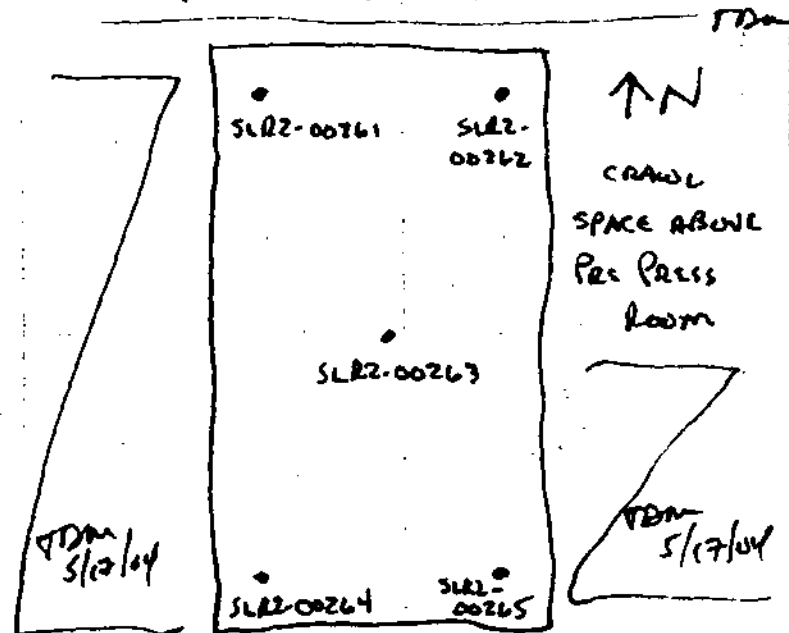 TDM
↑N
SLR2-00261
SLR2-
00262
CRAWL
SPACE ABOVE
PRE PRESS
ROOM
SLR2-00263
TDM
5/17/04
TDM
5/17/04
SLR2-00264
SLR2-
00265